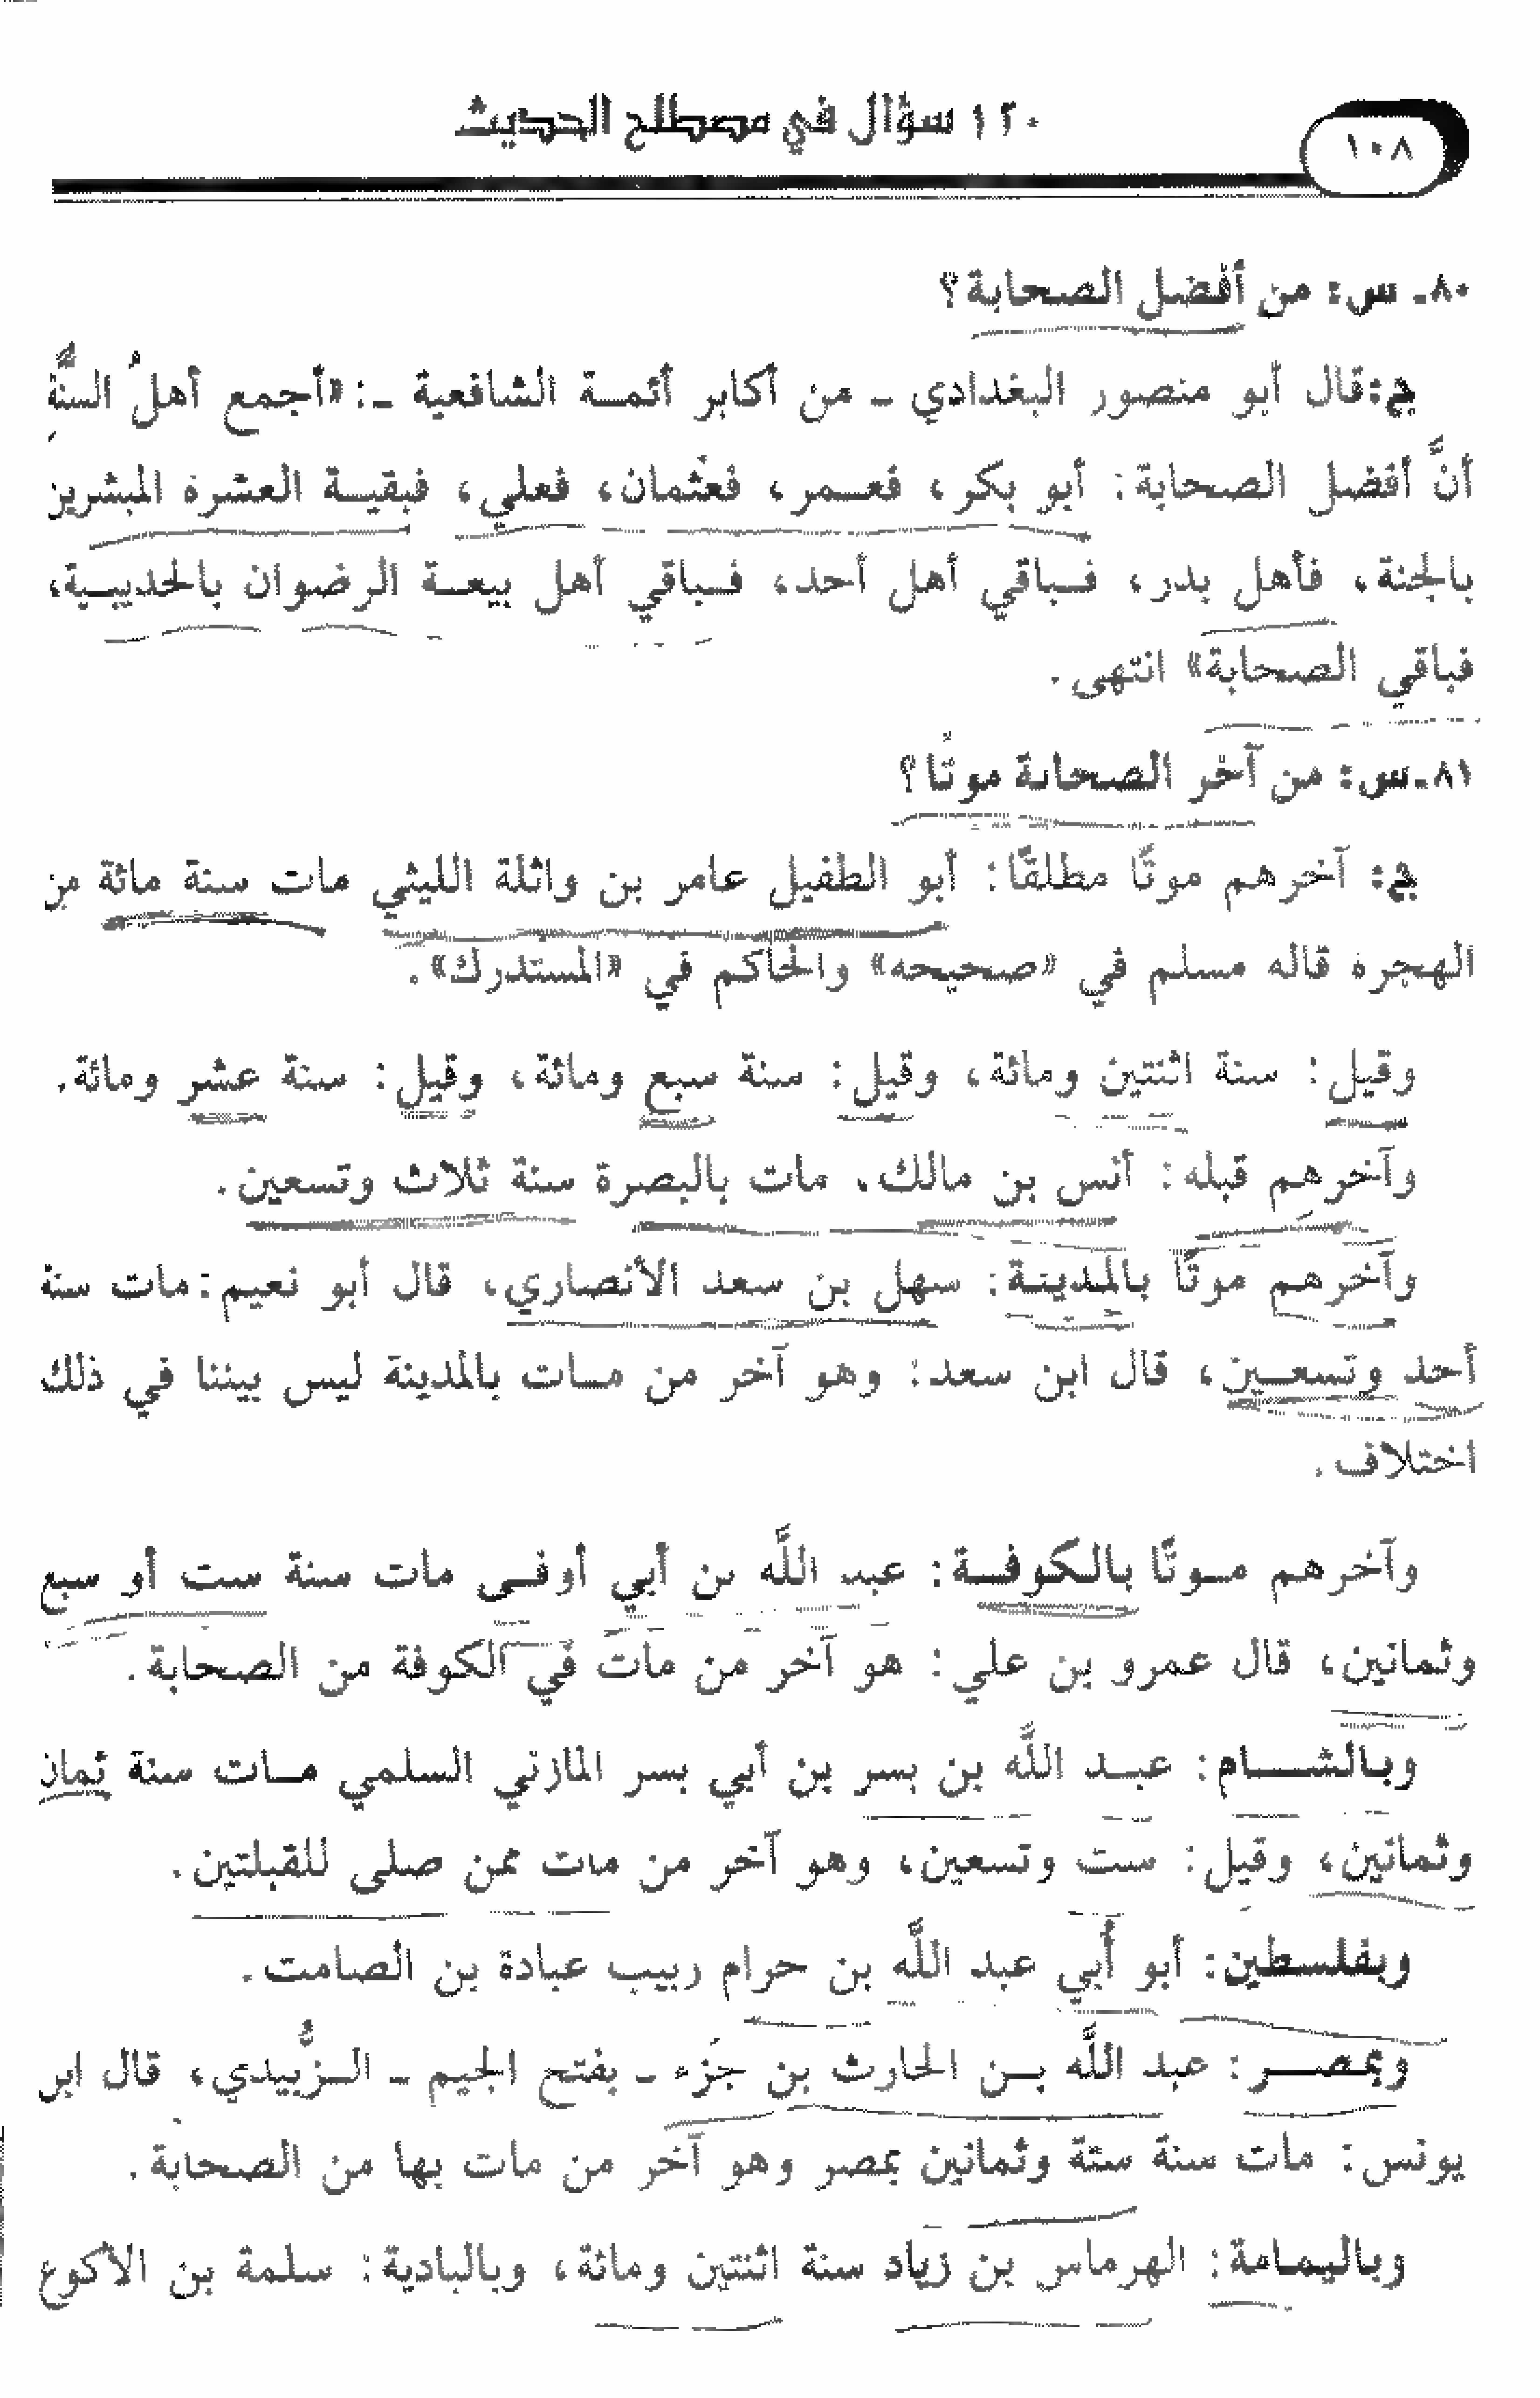 ١٢٠ سؤال في مصطلح الحديث
١٠٨
٨٠ـ س: من أفضل الصحابة؟
ج: قال أبو منصور البغدادي ـ من أكابر أئمة الشافعية ـ: «أجمع أهلُ السنَّةِ
أنَّ أفضل الصحابة: أبو بكر، فعمر، فعثمان، فعلي، فبقية العشرة المبشرين
بالجنة، فأهل بدر، فباقي أهل أحد، فباقي أهل بيعة الرضوان بالحديبية،
فباقي الصحابة» انتهى.
٨١ـ س: من آخر الصحابة موتًا؟
ج: آخرهم موتًا مطلقًا: أبو الطفيل عامر بن واثلة الليثي مات سنة مائة من
الهجرة قاله مسلم في «صحيحه» والحاكم في «المستدرك».
وقيل: سنة اثنتين ومائة، وقيل: سنة سبع ومائة، وقيل: سنة عشر ومائة.
وآخرهم قبله: أنس بن مالك، مات بالبصرة سنة ثلاث وتسعين.
وآخرهم موتًا بالمدينة: سهل بن سعد الأنصاري، قال أبو نعيم: مات سنة
أحد وتسعين، قال ابن سعد: وهو آخر من مات بالمدينة ليس بيننا في ذلك
اختلاف.
وآخرهم موتًا بالكوفة: عبد اللَّه بن أبي أوفى مات سنة ست أو سبع
وثمانين، قال عمرو بن علي: هو آخر من مات في الكوفة من الصحابة.
وبالشام: عبد اللَّه بن بسر بن أبي بسر المازني السلمي مات سنة ثمان
وثمانين، وقيل: ست وتسعين، وهو آخر من مات ممن صلى للقبلتين.
وبفلسطين: أبو أُبي عبد اللَّه بن حرام ربيب عبادة بن الصامت.
وبمصر: عبد اللَّه بن الحارث بن جَزء ـ بفتح الجيم ـ الزُّبيدي، قال ابن
يونس: مات سنة ستة وثمانين بمصر وهو آخر من مات بها من الصحابة.
وباليمامة: الهرماس بن زياد سنة اثنتين ومائة، وبالبادية: سلمة بن الأكوع